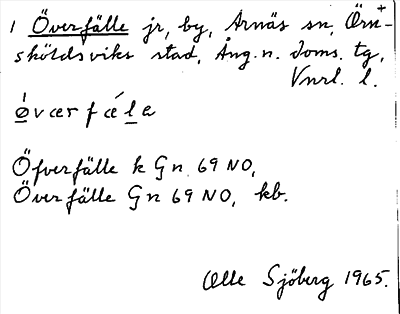 1 Överfälle jr, by, Arnäs sn, Örn-
sköldsviks stad, Ång. n. doms. tg,
Vnrl. l.
ø̀værfœ́la
Öfverfälle k Gn 69 NO,
Överfälle Gn 69 NO, kb.
Olle Sjöberg 1965.